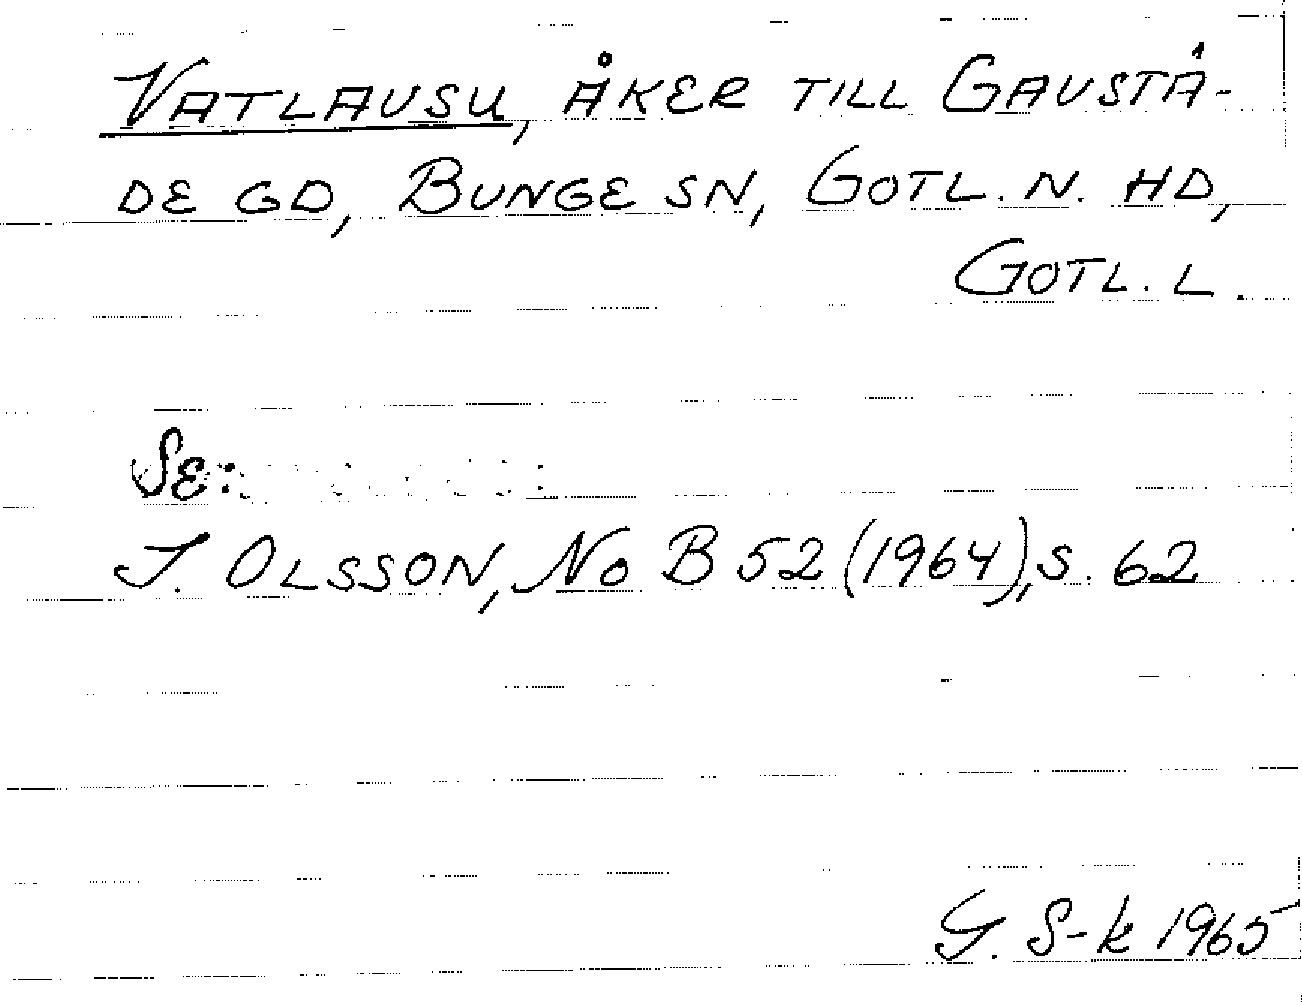 VATLAUSU, ÅKER TILL GAUSTÅ-
DE GD, BUNGE SN, GOTL. N. HD,
GOTL. L.
SE:
I. OLSSON, NoB 52 (1964), S. 62
G. S-k 1965